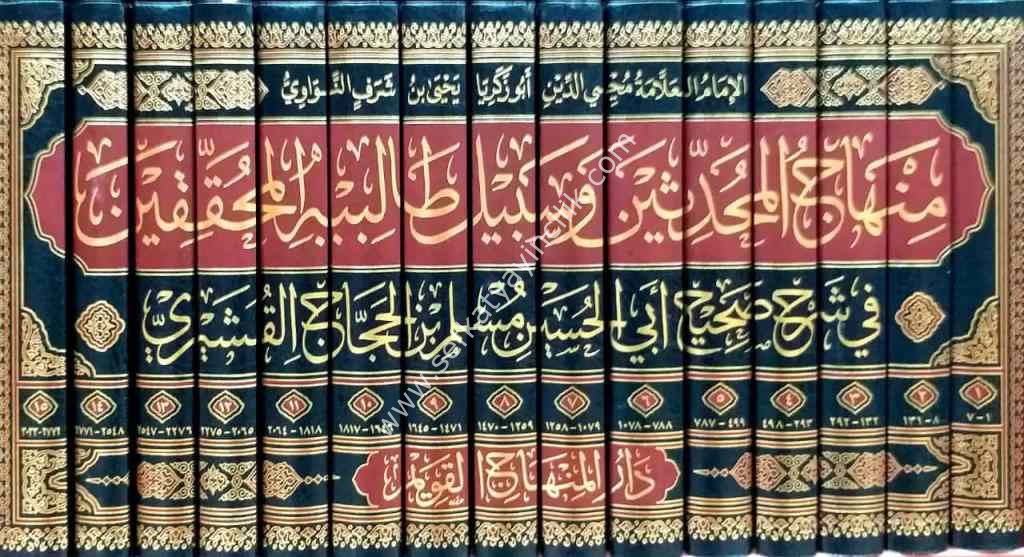 الإمام العلامة محيي الدين أبو زكريا يحيى بن شرف النواوي
مِنْهَاجُ المُحَدِّثِينَ وَسَبِيلُ طَالِبِيهِ المُحَقِّقِينَ
في شرح صحيح أبي الحسين مسلم بن الحجاج القشيري
١ ٢ ٣ ٤ ٥ ٦ ٧ ٨ ٩ ١٠ ١١ ١٢ ١٣ ١٤ ١٥
١-٧ ٨-١٣١ ١٣٢-٢٩٢ ٢٩٣-٤٩٨ ٤٩٩-٧٨٧ ٧٨٨-١٠٧٨ ١٠٧٩-١٢٥٨ ١٢٥٩-١٤٧٠ ١٤٧١-١٦٤٥ ١٦٤٦-١٨١٧ ١٨١٨-٢٠٦٤ ٢٠٦٥-٢٢٧٥ ٢٢٧٦-٢٥٤٧ ٢٥٤٨-٢٧٧١
دار المنهاج القويم